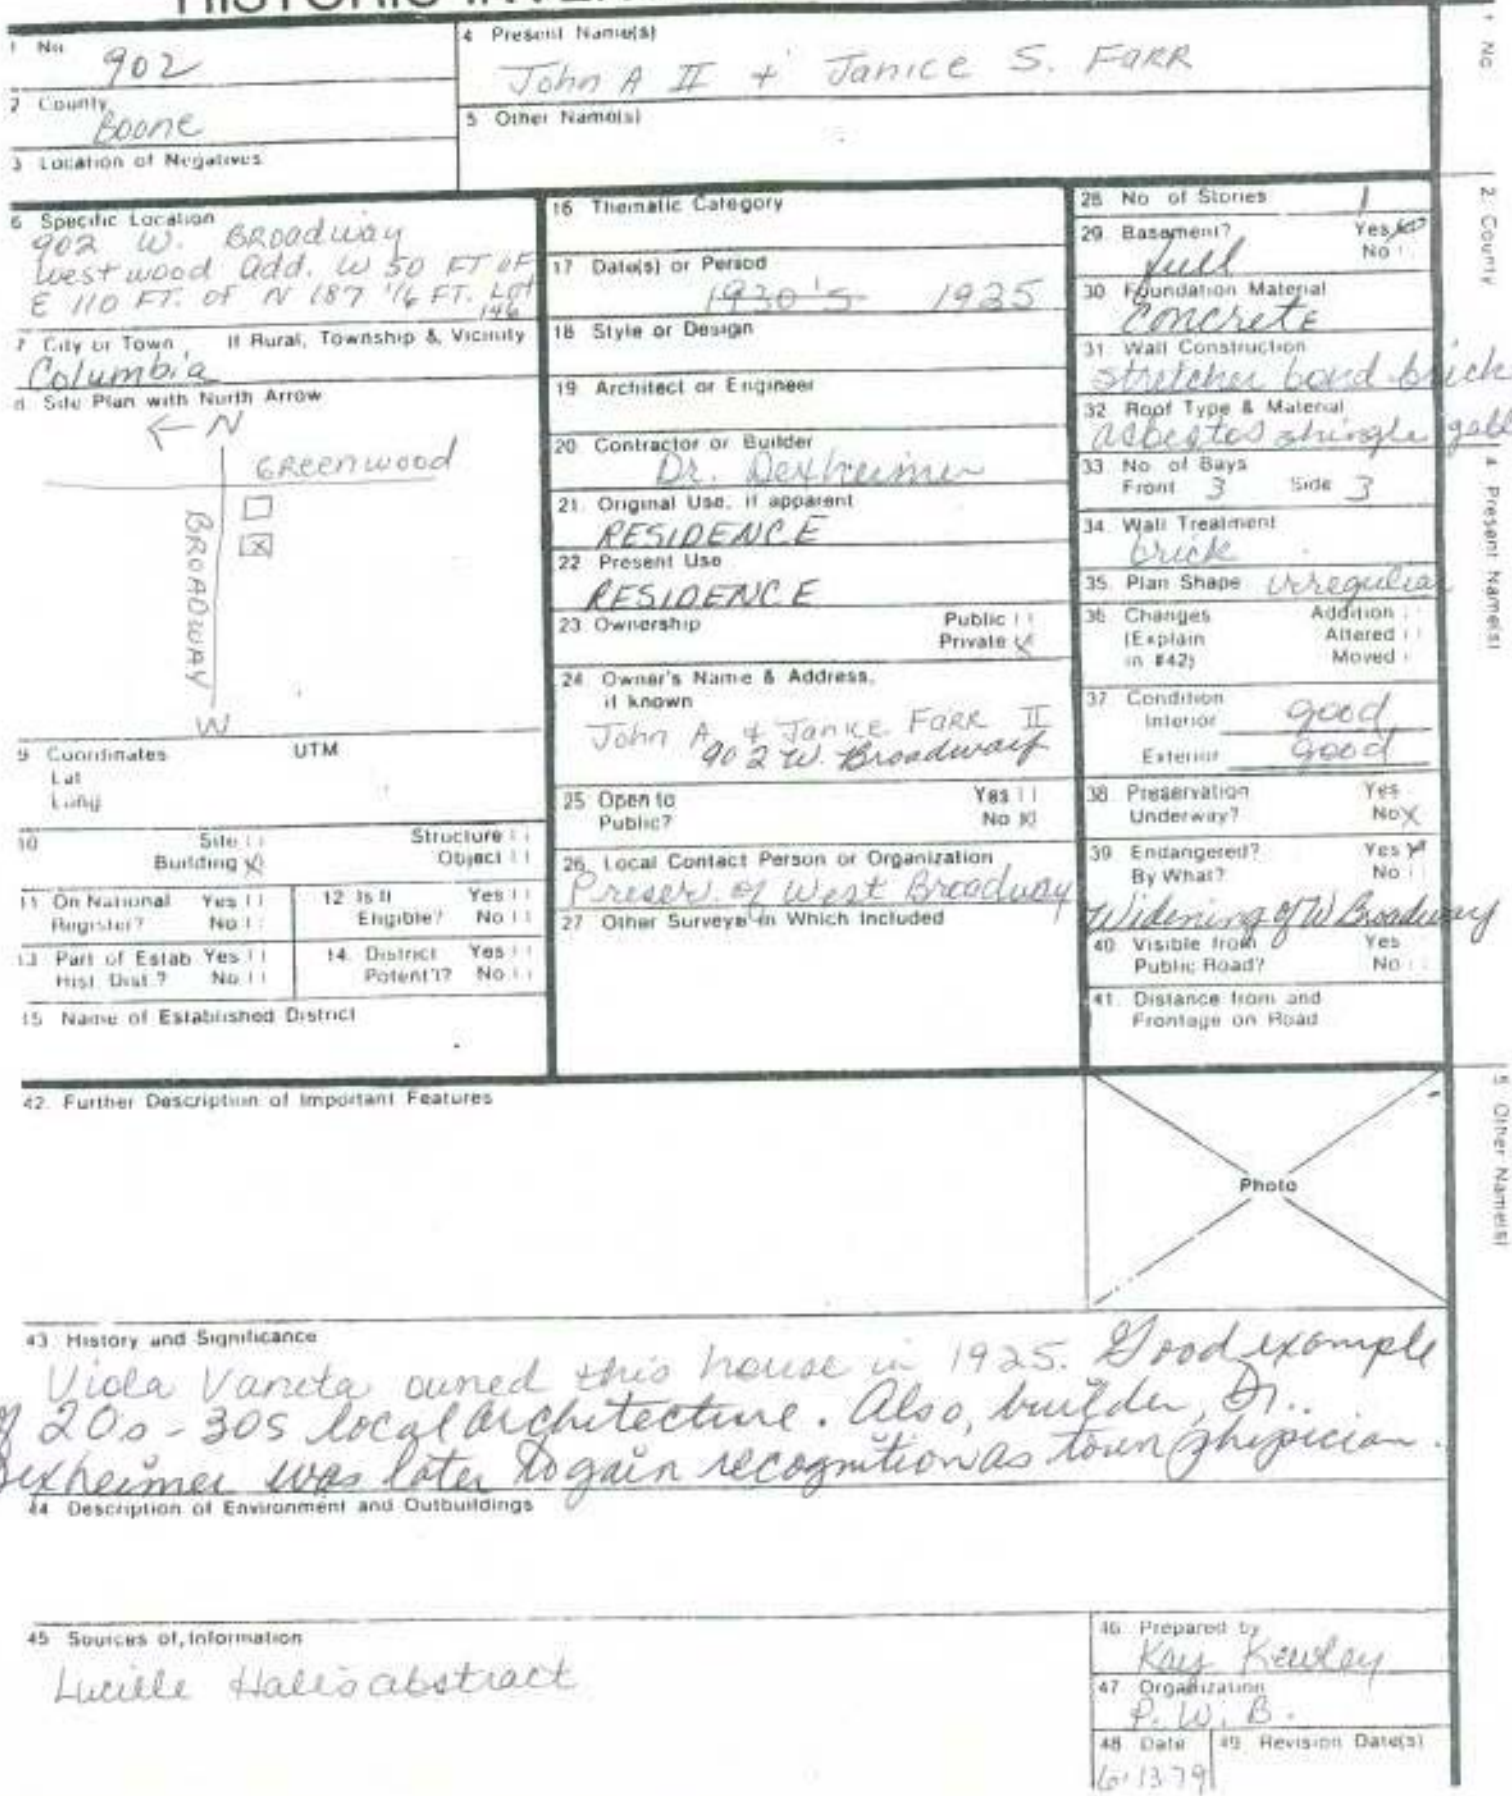 HISTORIC INVEN
1 No.
902
2 County
Boone
3 Location of Negatives
4 Present Name(s)
John A II + Janice S. FARR
5 Other Name(s)
6 Specific Location
902 W. BROadway
Westwood Add. W 50 FT OF
E 110 FT. OF N 187 1/6 FT. Lot
146
7 City or Town If Rural, Township & Vicinity
Columbia
8 Site Plan with North Arrow
← N
GREENWOOD
BROADWAY
W
9 Coordinates UTM
Lat
Long
10 Site Structure
Building X Object
11 On National Register? Yes No
12 Is It Eligible? Yes No
13 Part of Estab Hist. Dist.? Yes No
14. District Potent'l? Yes No
15 Name of Established District
16 Thematic Category
17 Date(s) or Period
1930's 1925
18 Style or Design
19 Architect or Engineer
20 Contractor or Builder
Dr. Dexheimer
21 Original Use, if apparent
RESIDENCE
22 Present Use
RESIDENCE
23 Ownership Public
Private X
24 Owner's Name & Address,
if known
John A. & Janice FARR II
902 W. Broadway
25 Open to Yes
Public? No X
26. Local Contact Person or Organization
Preserv. of West Broadway
27 Other Surveys in Which Included
28 No of Stories 1
29. Basement? Yes X
full No
30 Foundation Material
Concrete
31 Wall Construction
stretcher bond brick
32 Roof Type & Material
asbestos shingle gabl
33 No. of Bays
Front 3 Side 3
34. Wall Treatment
brick
35. Plan Shape irregular
36 Changes Addition
(Explain Altered
in #42) Moved
37 Condition
Interior good
Exterior good
38 Preservation Yes
Underway? No X
39 Endangered? Yes X
By What? No
Widening of W Broadway
40 Visible from Yes
Public Road? No
41. Distance from and
Frontage on Road
42. Further Description of Important Features
Photo
43 History and Significance
Viola Vaneta owned this house in 1925. Good example
of 20s-30s local architecture. Also, builder, Dr.
Dexheimer was later to gain recognition as town physician.
44 Description of Environment and Outbuildings
45 Sources of Information
Lucille Hale's abstract
46 Prepared by
Kay Kewley
47 Organization
P. W. B.
48 Date
6-13-79
49 Revision Date(s)
1 No
2 County
4 Present Name(s)
5 Other Name(s)